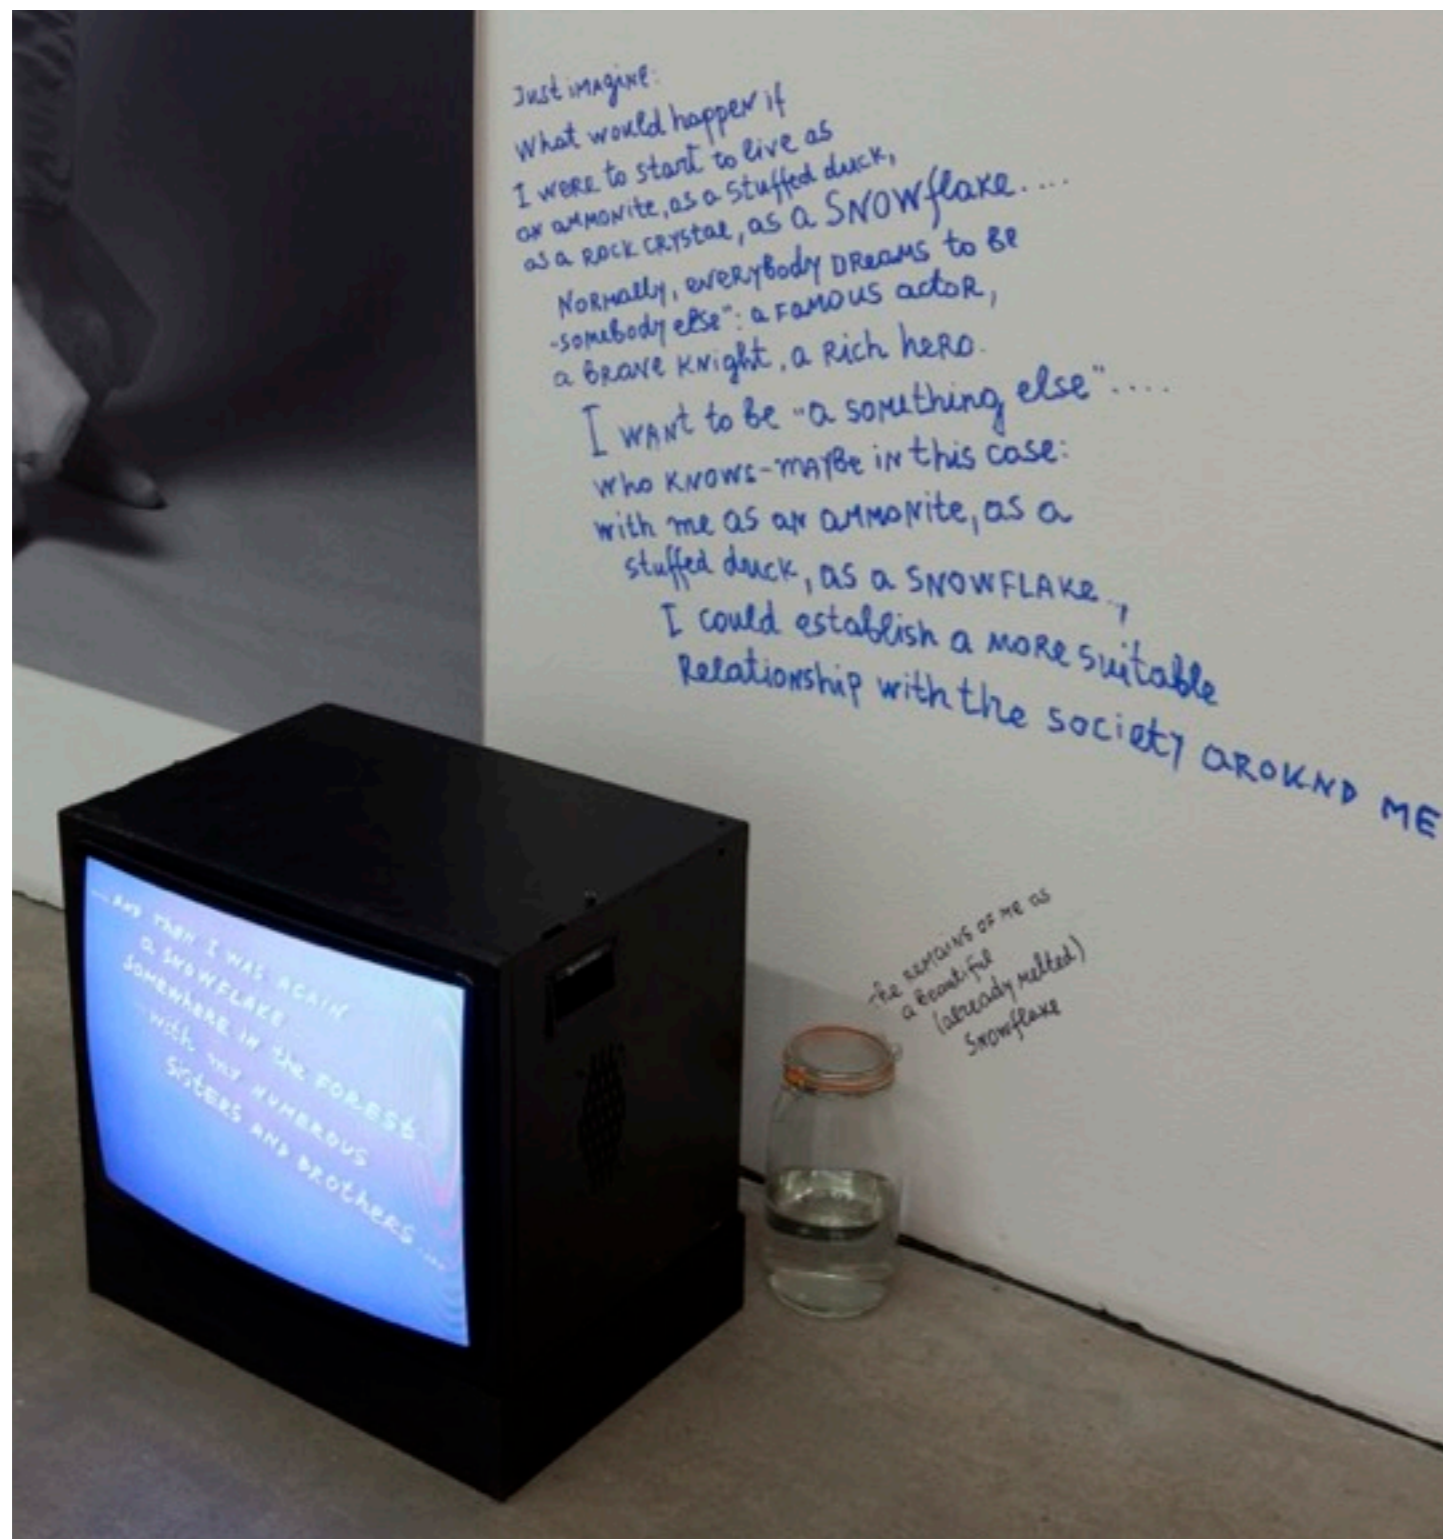 Just imagine:
What would happen if
I were to start to live as
an ammonite, as a stuffed duck,
as a rock crystal, as a SNOWflake....
Normally, everybody dreams to be
"somebody else": a famous actor,
a brave knight, a rich hero.
I want to be "a something else"....
who knows-maybe in this case:
with me as an ammonite, as a
stuffed duck, as a SNOWFLAKE..,
I could establish a more suitable
Relationship with the society around me
the remains of me as
a beautiful
(already melted)
snowflake
...AND then I WAS AGAIN
a SNOWFLAKE
SOMEWHERE IN the FOREST
with my NUMEROUS
SISTERS AND BROTHERS....